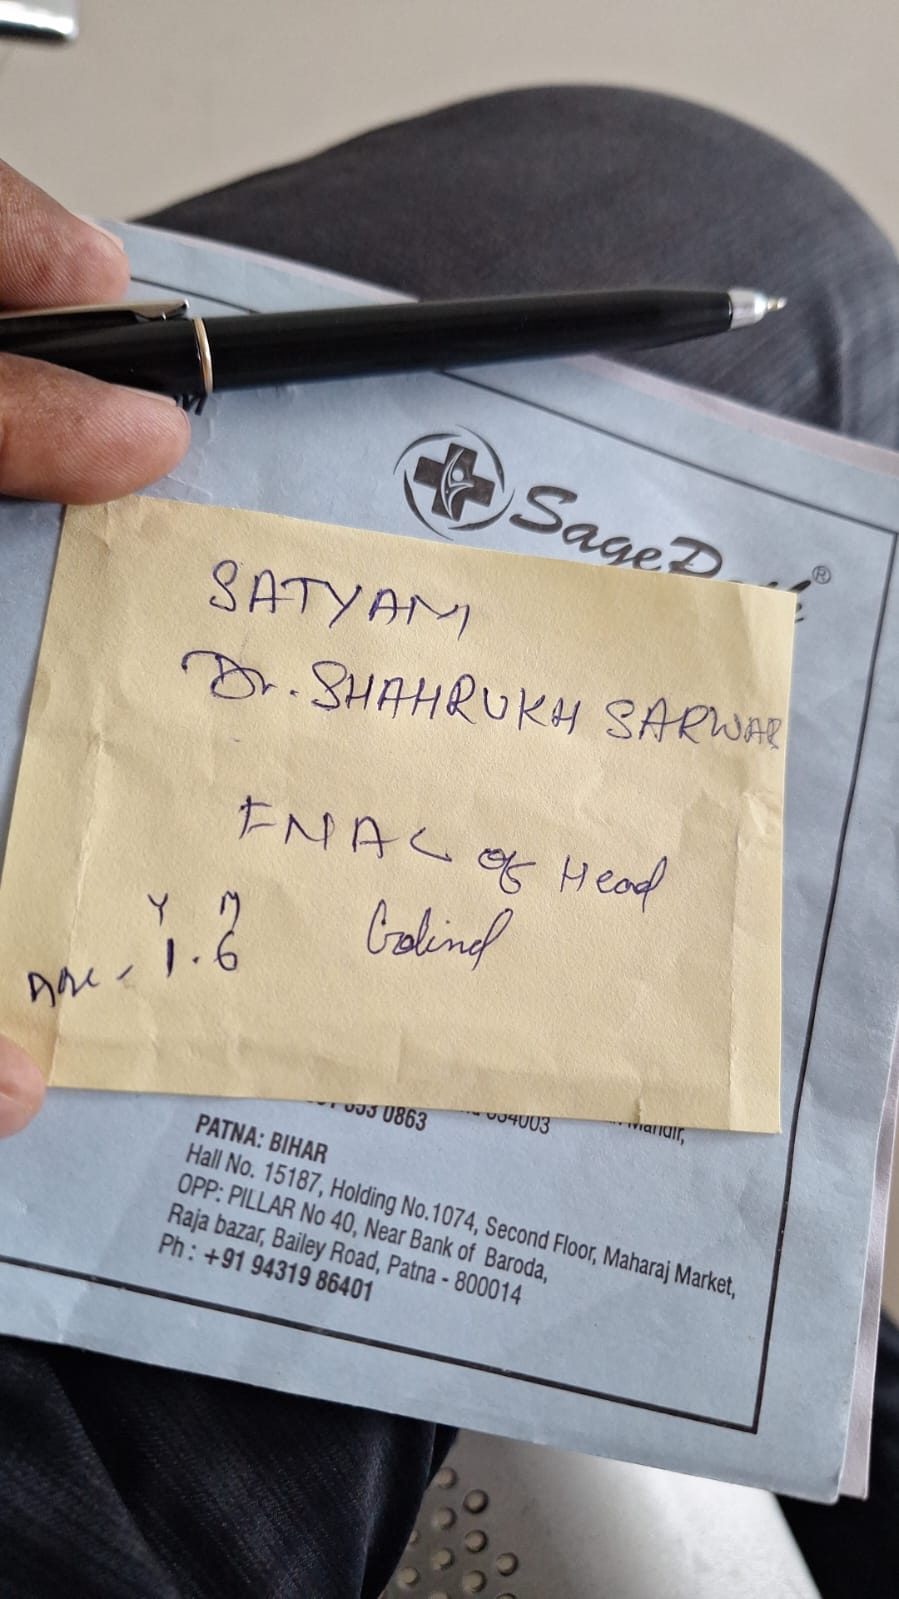 Sage
SATYAM
Dr. SHAHRUKH SARWAR
FNAC of Head
Y M
Age - 1.6
0863
034003
Mandir,
PATNA: BIHAR
Hall No. 15187, Holding No.1074, Second Floor, Maharaj Market,
OPP: PILLAR No 40, Near Bank of Baroda,
Raja bazar, Bailey Road, Patna - 800014
Ph : +91 94319 86401